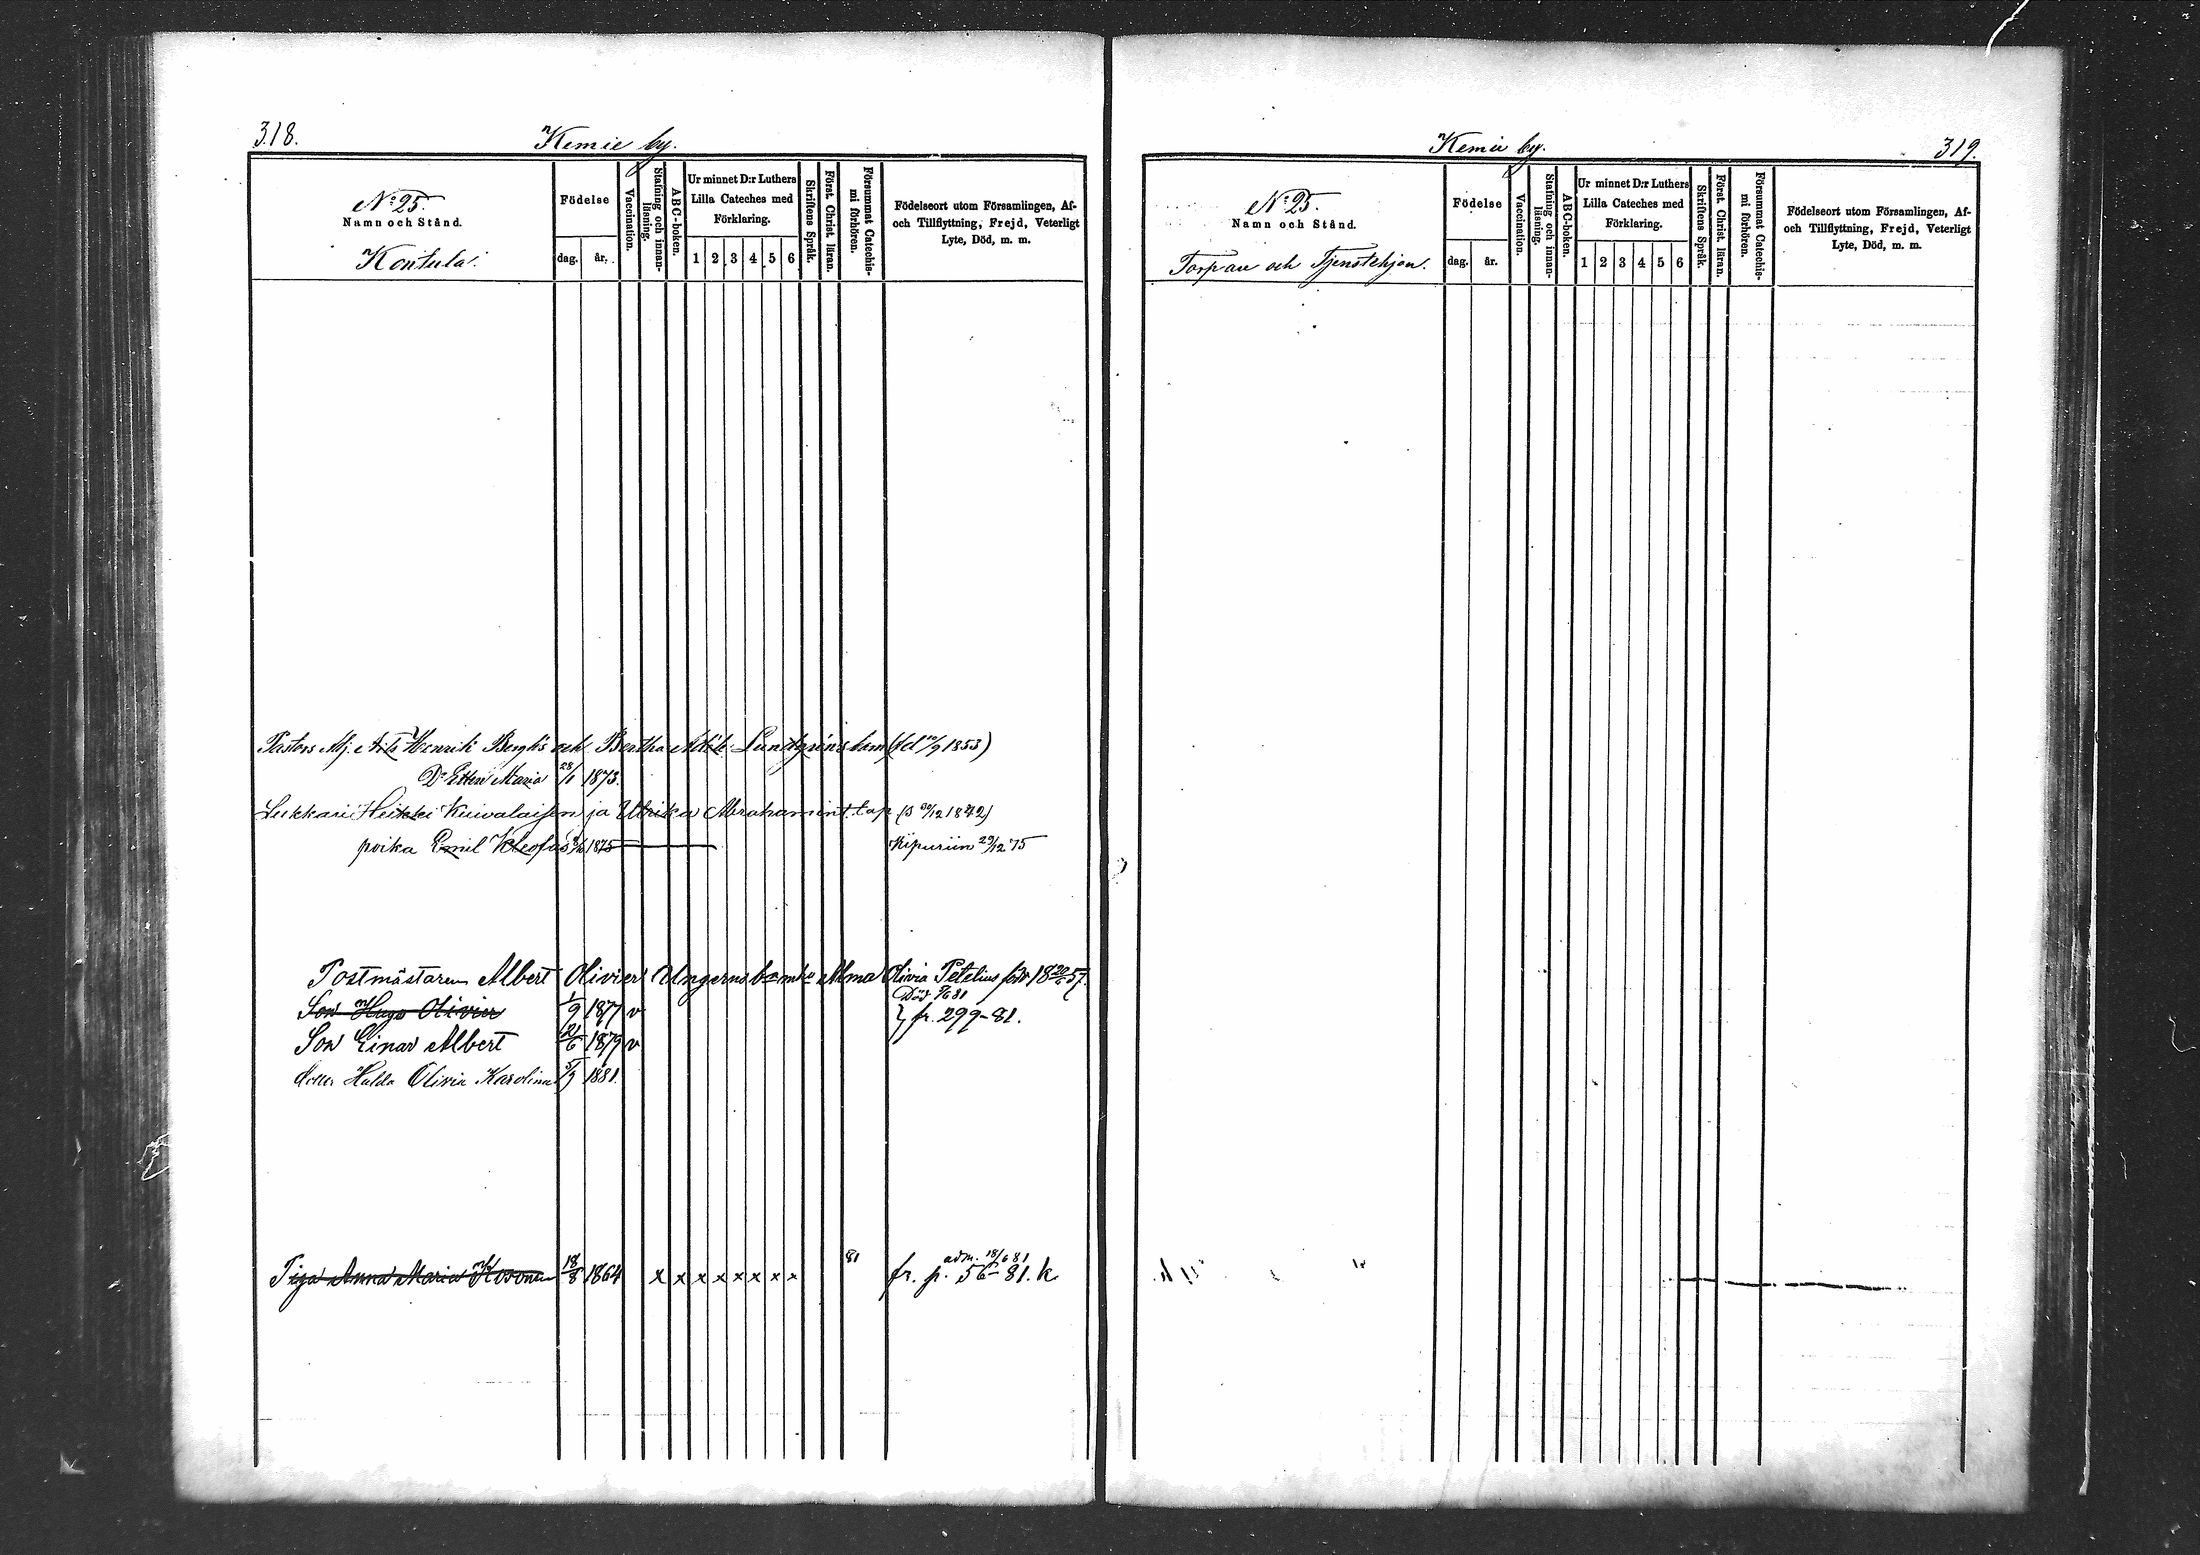 318.
Kemie by.
N:o 25.
Namn och Stånd.
Kontula.
Födelse
dag. år.
Vaccination.
Stafning och innan-
läsning.
ABC-boken.
Ur minnet D:r Luthers
Lilla Cateches med
Förklaring.
1 2 3 4 5 6
Skriftens Språk.
Först. Christ. läran.
Försummat Catechis-
mi förhören.
Födelseort utom Församlingen, Af-
och Tillflyttning, Frejd, Veterligt
Lyte, Död, m. m.
Pastors Henrik Berghs och Bertha Lundgrens barn (fd 10/9 1853)
Dr Ellen Maria 28/1 1873.
Lukkari Heikki Kuivalaisen ja Ulrika Abrahamint. lap (s 30/12 1842)
poika Emil Kleofas 1875 Kipuriin 29/12 75
Postmästaren Albert Olivier Ungerns b m h:u Alma Olivia Petelius född 18 57.
Död 81
Son Hugo Olivier 1/9 1877 v } fr. 299-81.
Son Einar Albert 21/6 1879 v
Hulda Olivia Karolina 5/7 1881.
adm. 18/6 81
Piga Anna Maria Kosonen 18/8 1864 x x x x x x x x 81 fr. p. 56-81. k.
Kemie by.
319.
N:o 25.
Namn och Stånd.
Torpare och Tjenstehjon.
Födelse
dag. år.
Vaccination.
Stafning och innan-
läsning.
ABC-boken.
Ur minnet D:r Luthers
Lilla Cateches med
Förklaring.
1 2 3 4 5 6
Skriftens Språk.
Först. Christ. läran.
Försummat Catechis-
mi förhören.
Födelseort utom Församlingen, Af-
och Tillflyttning, Frejd, Veterligt
Lyte, Död, m. m.